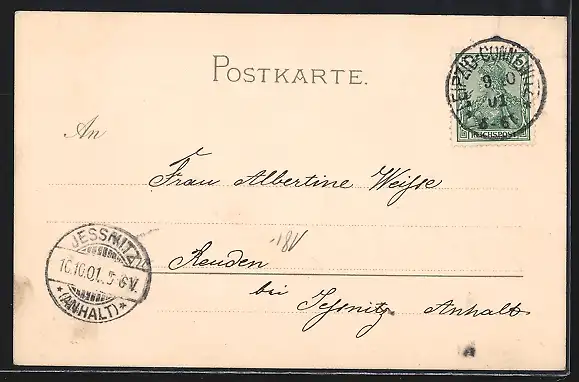 POSTKARTE.
LEIPZIG-CONNEWITZ
9 10
01
REICHSPOST
An
Frau Albertine Weisse
Reuden
bei Jessnitz Anhalt
JESSNITZ
10.10.01. 5-6V.
* (ANHALT) *